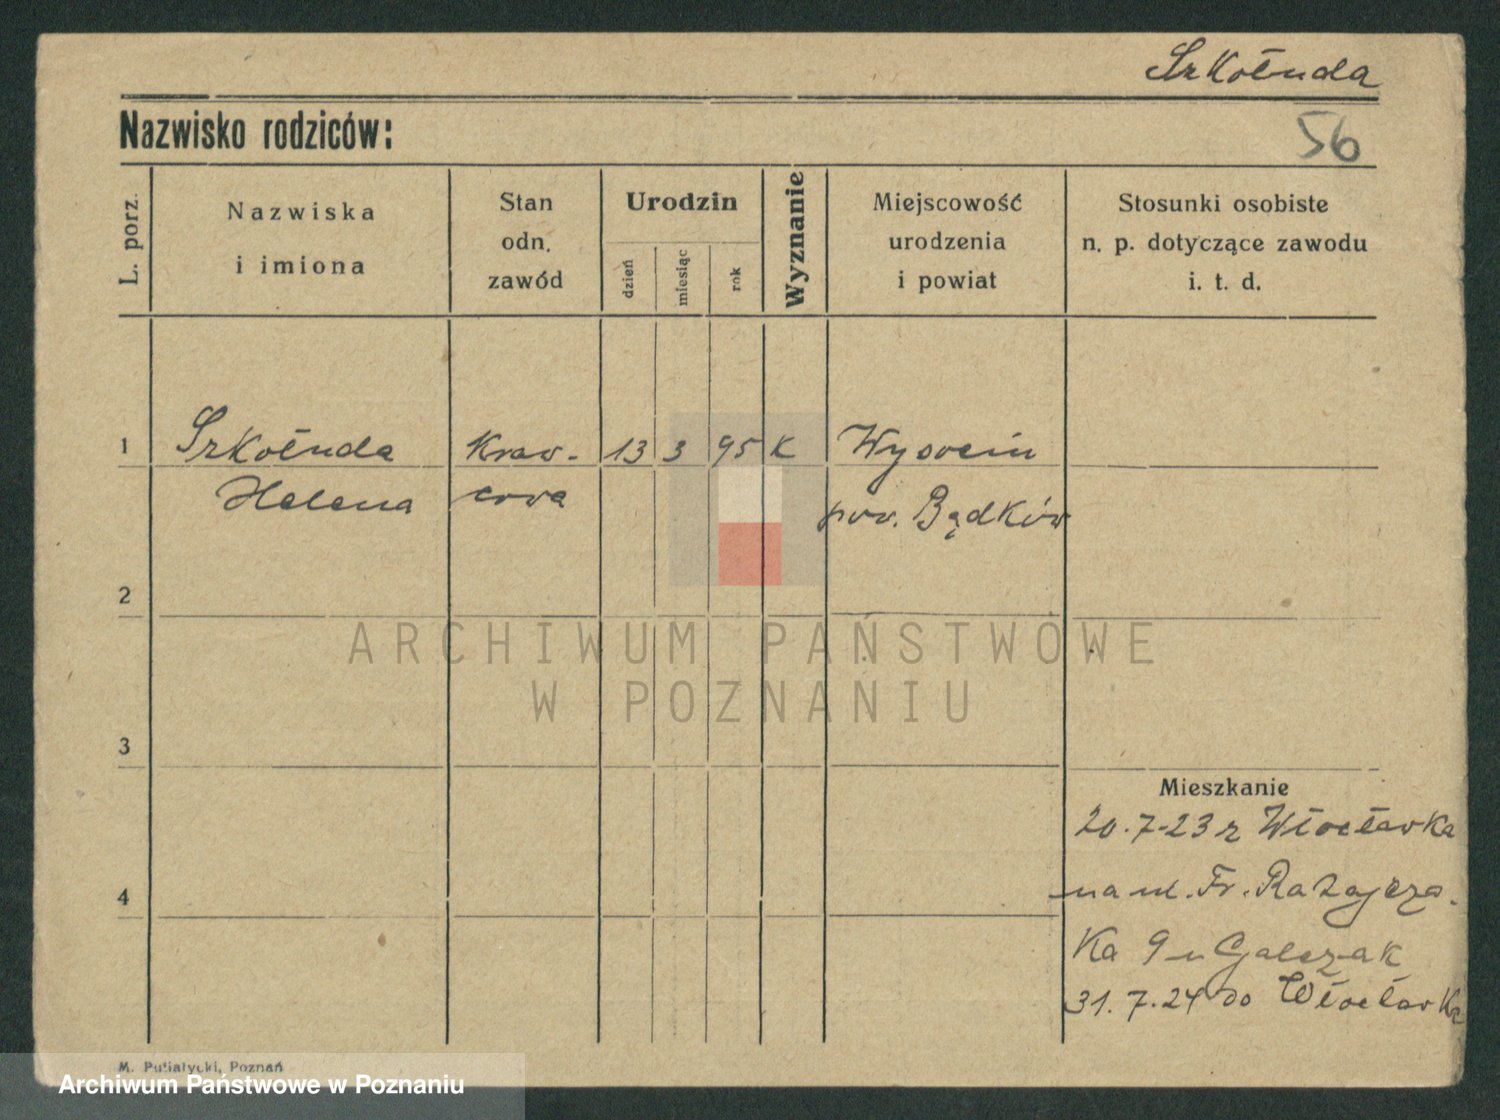 Szkołuda
Nazwisko rodziców:
56
L. porz.
Nazwiska
i imiona
Stan
odn.
zawód
Urodzin
dzień
miesiąc
rok
Wyznanie
Miejscowość
urodzenia
i powiat
Stosunki osobiste
n. p. dotyczące zawodu
i. t. d.
1 Szkołuda Kraw- 13 3 95 K
Helena cowa pow. Bądków
2
3
4
Mieszkanie
20.7-23 z Włocławka
na ul. Fr. Ratajcza.
ka 9 u Galczak
31.7.24 do Włocławka
M. Putiatycki, Poznań
ARCHIWUM PAŃSTWOWE
W POZNANIU
Archiwum Państwowe w Poznaniu